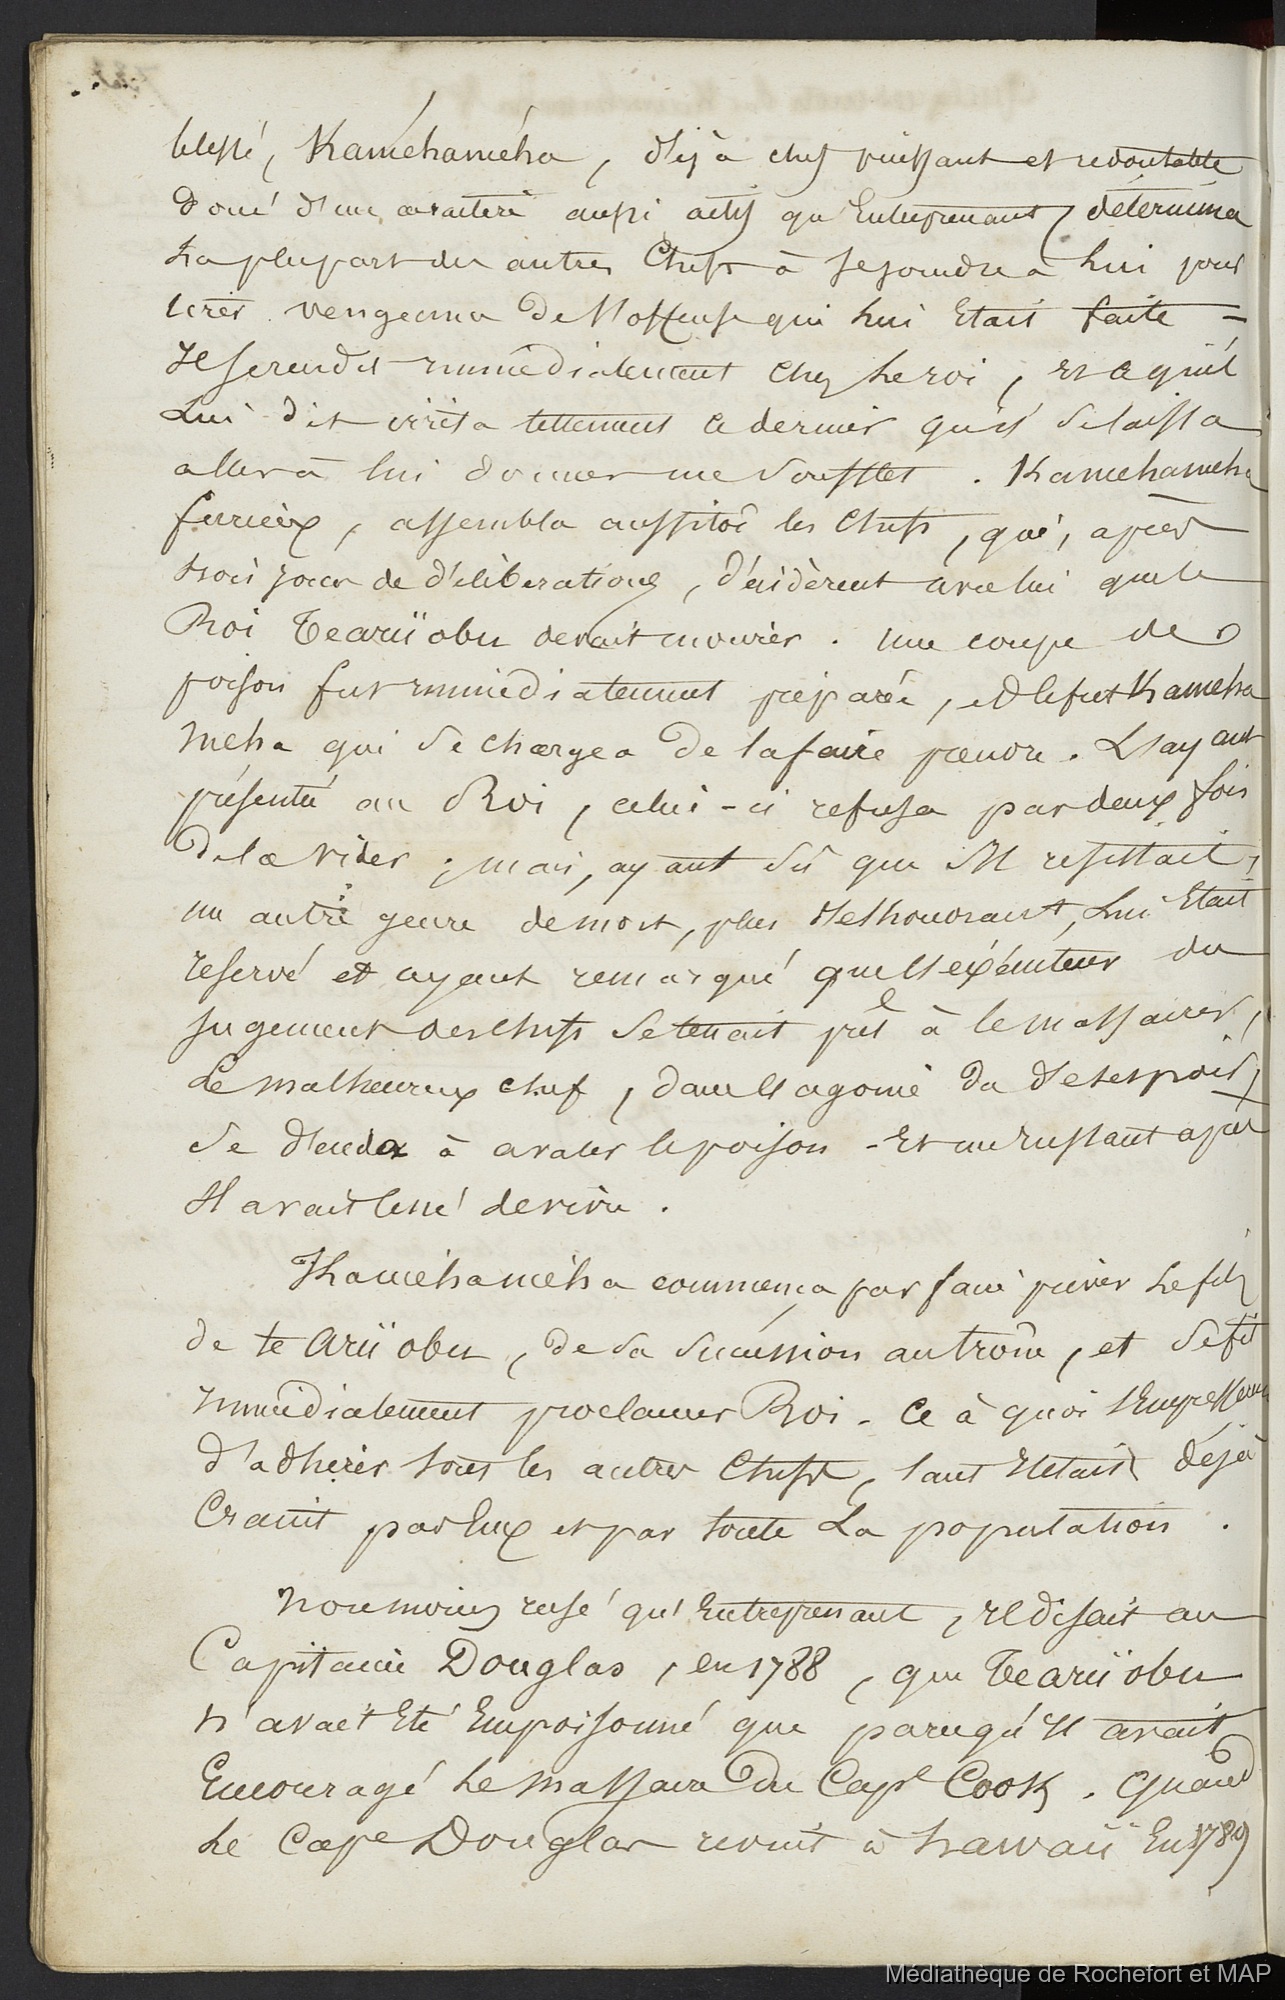 blessé, Kaméhaméha, déjà chef puissant et redoutable
doué d'un caractère aussi actif qu'Entreprenant, détermina
La plupart des autres Chefs à se joindre à Lui pour
tirer vengeance de l'offense qui Lui Etait faite –
Il se rendit immédiatement chez Le roi, et ce qu'il
Lui dit irrita tellement ce dernier qu'il se laissa
aller à lui donner un soufflet. Kamehameha
furieux, assembla aussitôt les Chefs, qui, après
trois jours de délibérations, décidèrent avec lui que le
Roi Tearii obu devait mourir. une coupe de
poison fut immédiatement préparée, et ce fut Kaméha
méha qui se chargea de la faire prendre. L'ayant
présenté au Roi, celui-ci refusa par deux fois
de la vider; mais, ayant su que s'il résistait,
un autre genre de mort, plus déshonorant, Lui Etait
réservé et ayant remarqué que l'éxécuteur du
jugement des chefs se tenait prêt à le massacrer,
Le malheureux chef, dans l'agonie du désespoir,
se décida à avaler le poison - Et un instant après
Il avait cessé de vivre.
Kaméhaméha commença par faire priver Le fils
de te Arii obu, de sa succession au trône, et se fit
immédiatement proclamer Roi - Ce à quoi s'Empressèrent
d'adhérer tous les autres Chefs, tant Il était déjà
Craint par Eux et par toute La population.
Non moins rusé qu'Entreprenant, il disait au
Capitaine Douglas, en 1788, que Tearii obu
n'avait Eté Empoisonné que parcequ'Il avait
Encouragé Le massacre du Cape Cook. Quand
Le Cape Douglas revint à hawaii En 1789
Médiathèque de Rochefort et MAP